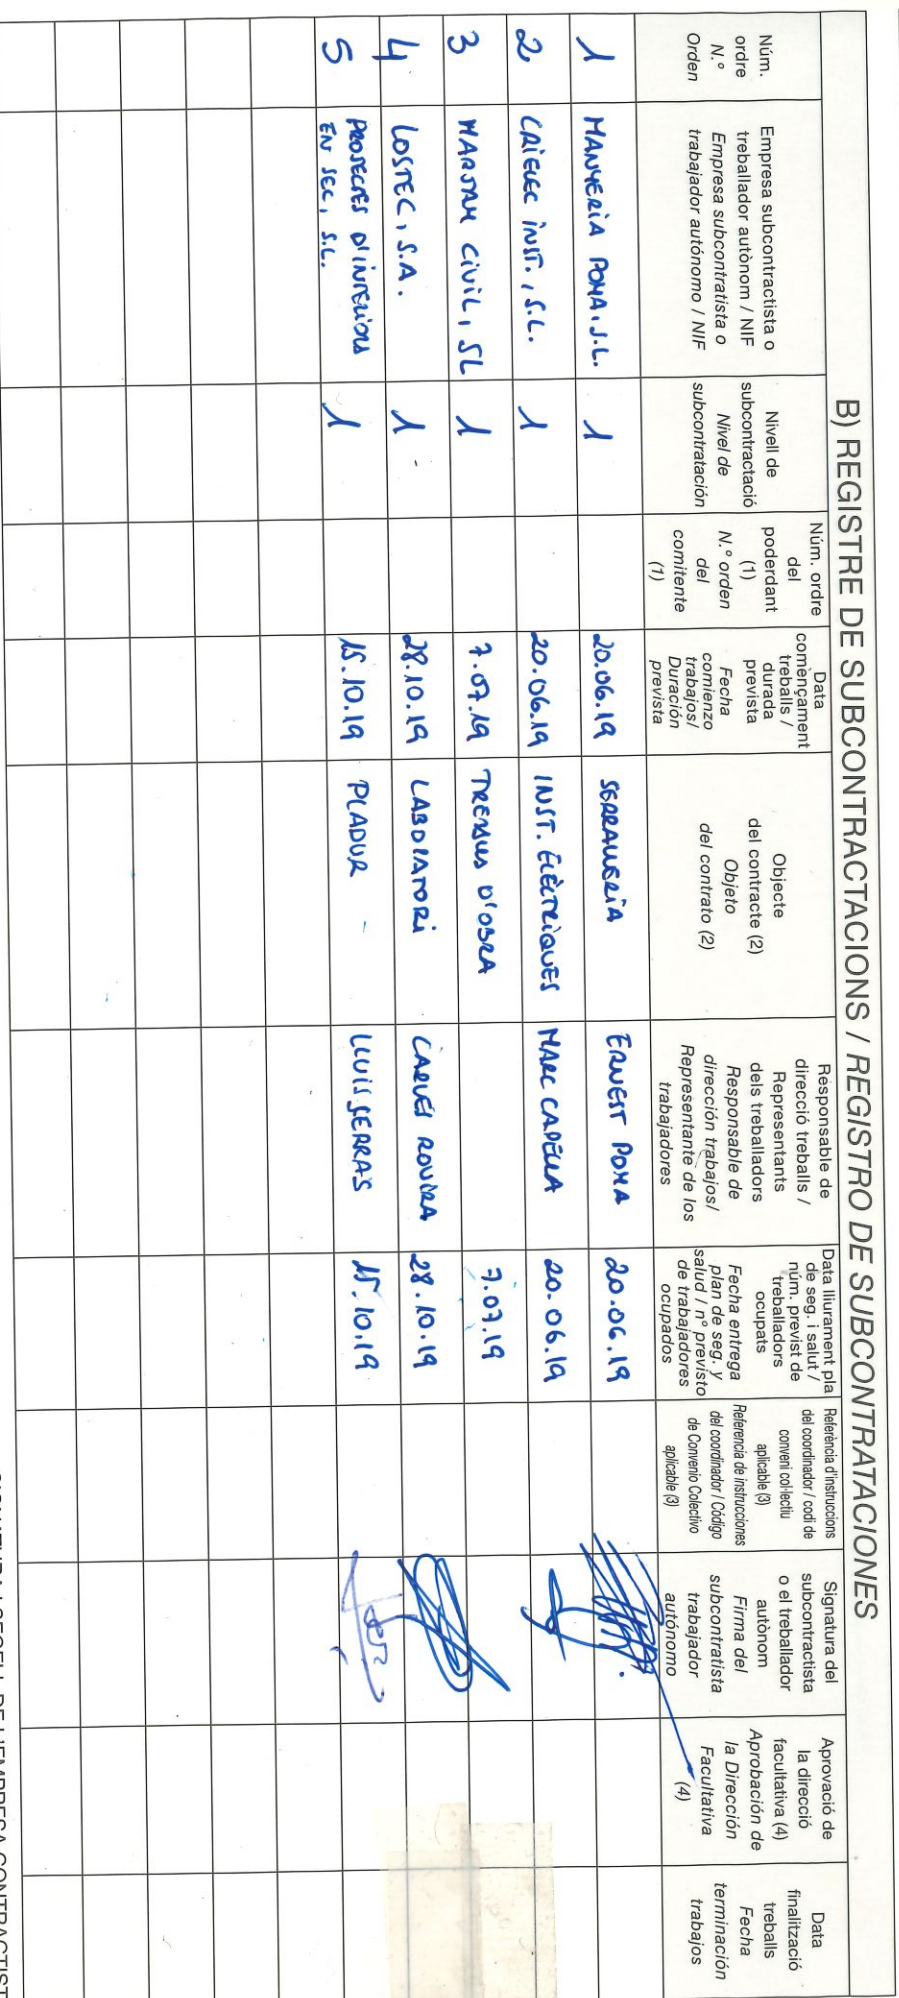 B) REGISTRE DE SUBCONTRACTACIONS / REGISTRO DE SUBCONTRATACIONES
Núm.
ordre
N.º
Orden
Empresa subcontractista o
treballador autònom / NIF
Empresa subcontratista o
trabajador autónomo / NIF
Nivell de
subcontractació
Nivel de
subcontratación
Núm. ordre
del
poderdant
(1)
N.º orden
del
comitente
(1)
Data
començament
treballs /
durada
prevista
Fecha
comienzo
trabajos/
Duración
prevista
Objecte
del contracte (2)
Objeto
del contrato (2)
Responsable de
direcció treballs /
Representants
dels treballadors
Responsable de
dirección trabajos/
Representante de los
trabajadores
Data lliurament pla
de seg. i salut /
núm. previst de
treballadors
ocupats
Fecha entrega
plan de seg. y
salud / nº previsto
de trabajadores
ocupados
Referència d'instruccions
del coordinador / codi de
conveni col·lectiu
aplicable (3)
Referencia de instrucciones
del coordinador / Código
de Convenio Colectivo
aplicable (3)
Signatura del
subcontractista
o el treballador
autònom
Firma del
subcontratista
trabajador
autónomo
Aprovació de
la direcció
facultativa (4)
Aprobación de
la Dirección
Facultativa
(4)
Data
finalització
treballs
Fecha
terminación
trabajos
1 MANYERIA POMA, S.L. 1 20.06.19 SERRALLERIA ERNEST POMA 20.06.19
2 CRIELEC INST., S.L. 1 20.06.19 INST. ELÈCTRIQUES MARC CAPELLA 20.06.19
3 MARJAM CIVIL, SL 1 7.07.19 D'OBRA 7.07.19
4 LOSTEC, S.A. 1 28.10.19 LABORATORI CARLES ROVIRA 28.10.19
5 PROJECTES D'INTERIORS
EN SEC, S.L. 1 15.10.19 PLADUR LLUIS SERRAS 15.10.19